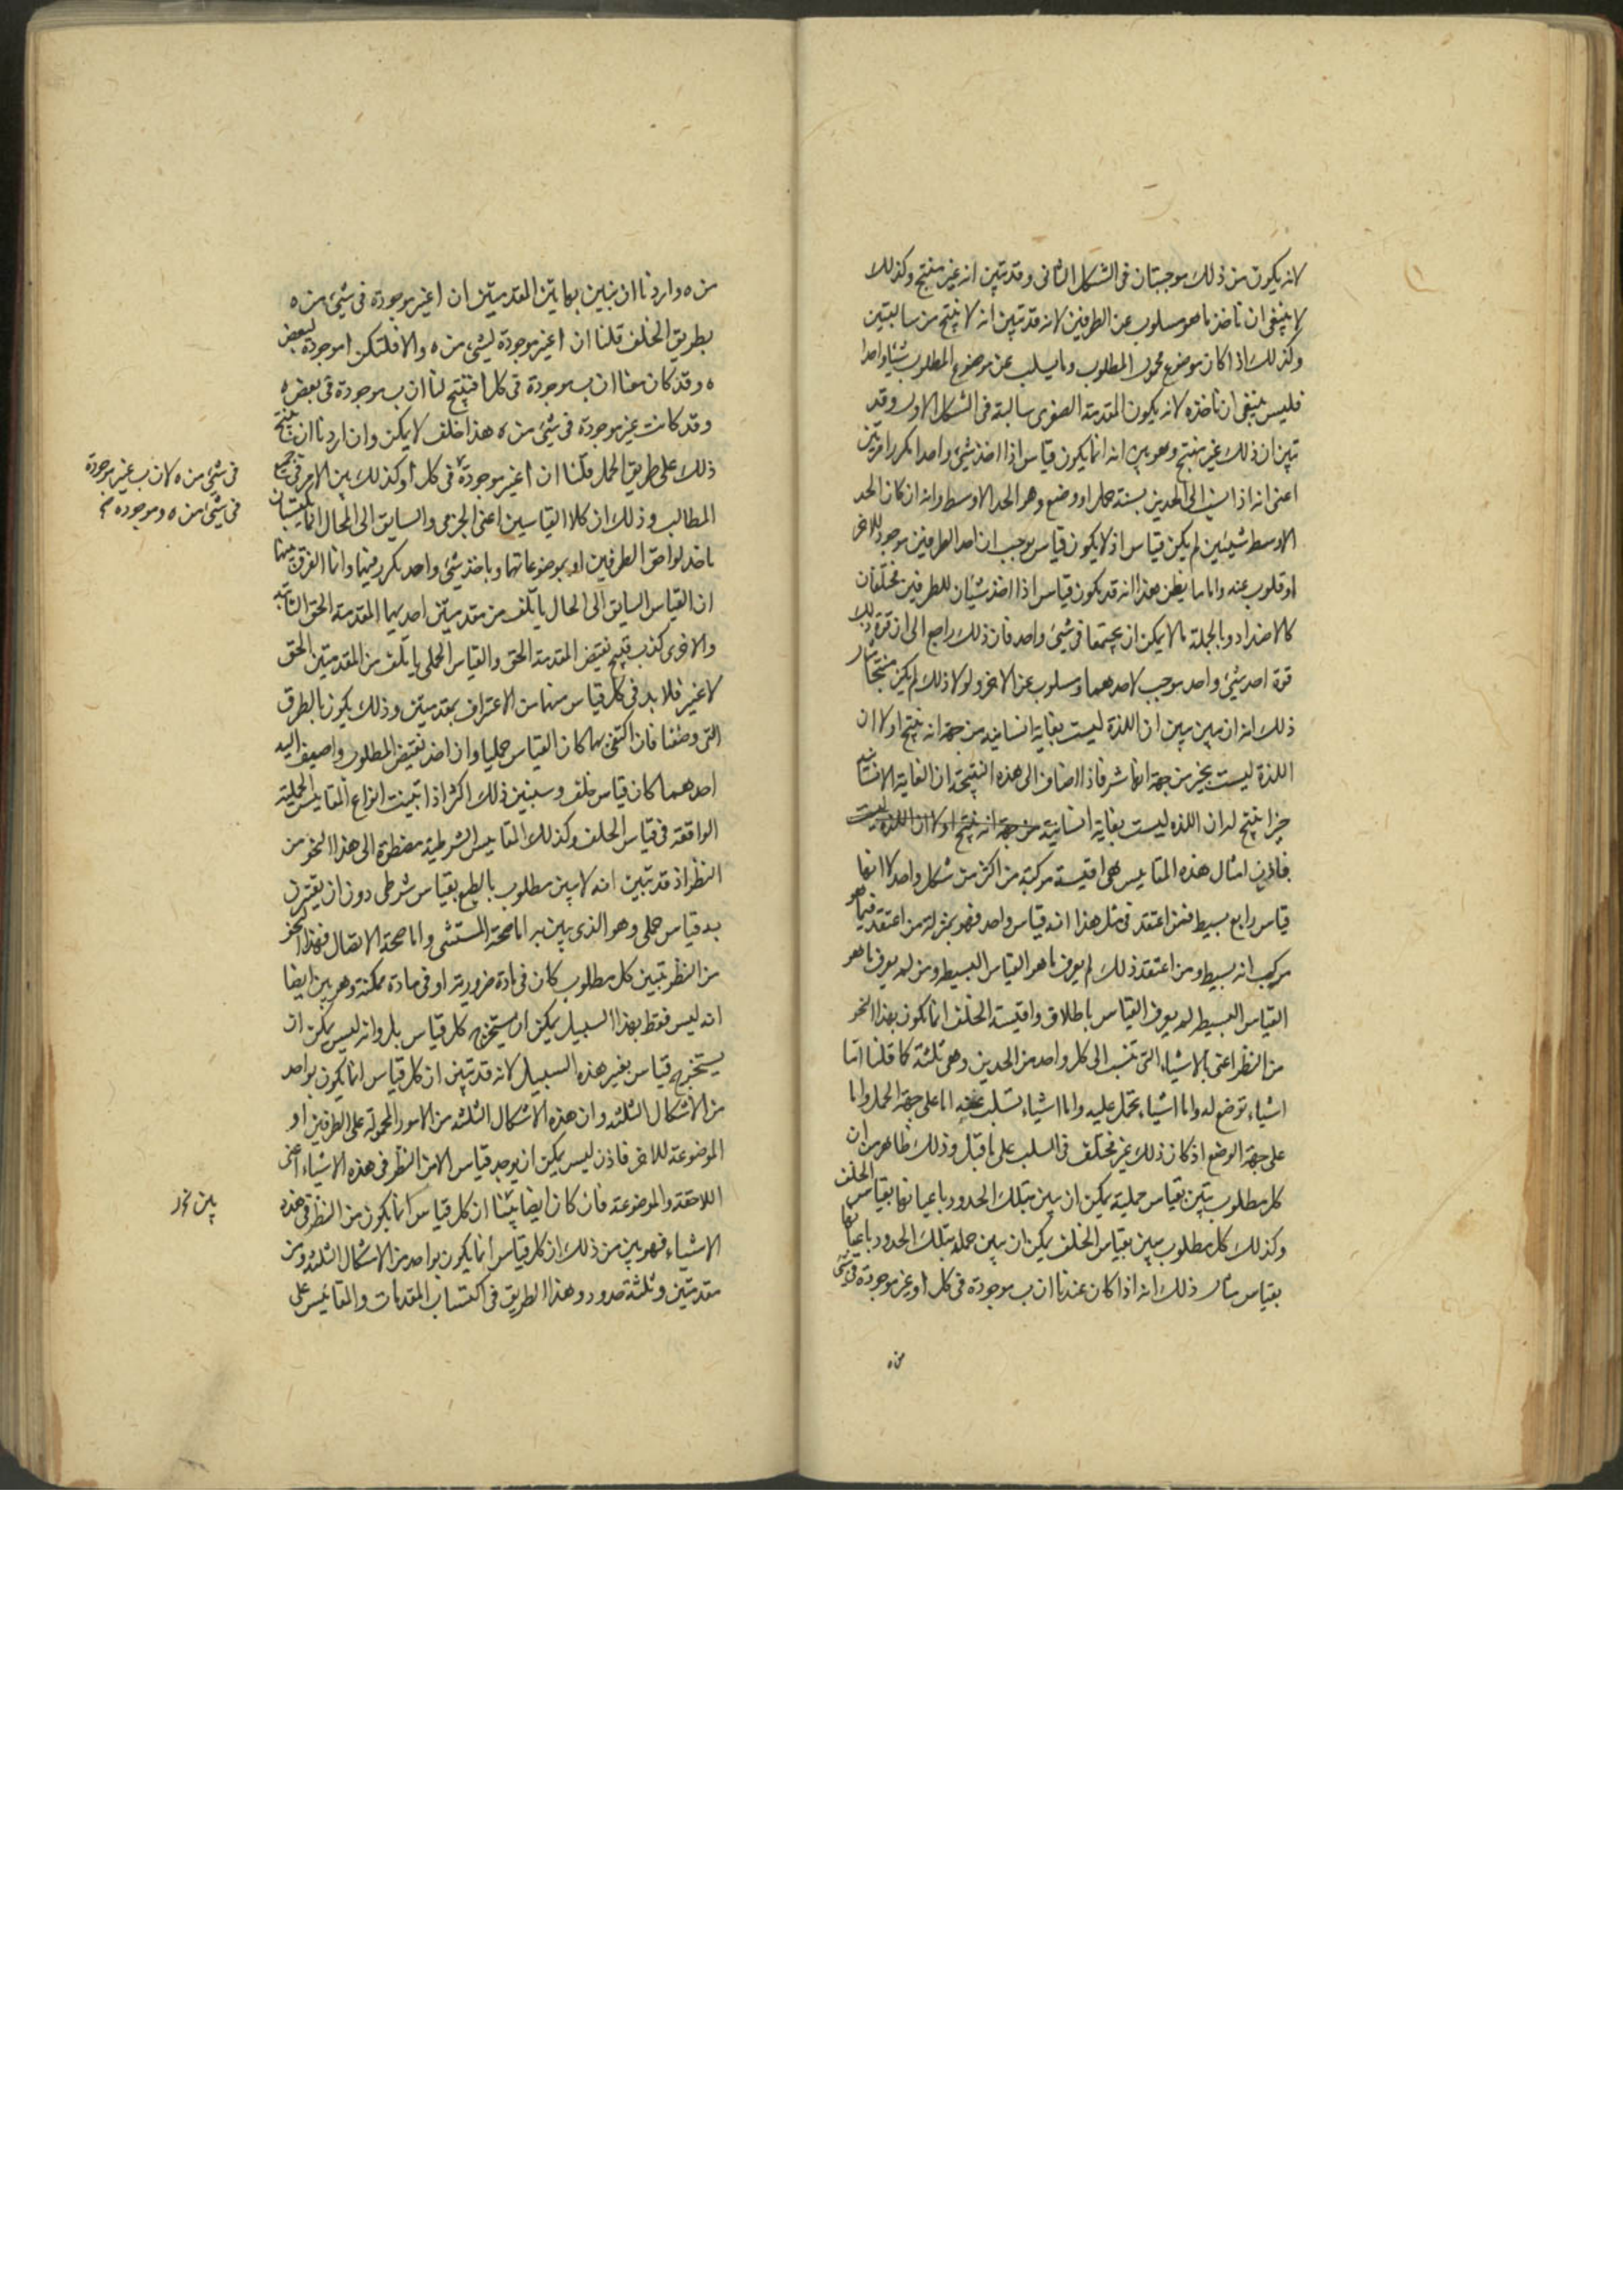 لانه يكون من ذلك موجبتان فى الشكل الثانى وقد تبين انه غير منتج وكذلك
لا ينبغى ان ناخذ ما هو مسلوب عن الطرفين لانه قد تبين انه لا ينتج من سالبتين
وكذلك اذا كان موضوع محمول المطلوب وما يسلب عن موضوع المطلوب شيئا واحدا
فليس ينبغى ان ناخذه لانه يكون المقدمة الصغرى سالبة فى الشكل الاول وقد
تبين ان ذلك غير منتج وهو بين انه انما يكون قياس اذا اخذ شئ واحد امكررا مرتين
اعنى انه اذا نسب الى الحدين بنسبة حمل او وضع وهو الحد الاوسط وانه ان كان الحد
الاوسط شيئين لم يكن قياس اذ لا يكون قياس موجب ان احد الطرفين موجود للاخر
او مسلوب عنه واما ما يظن هذا انه قد يكون قياس اذا اخذ شيئان للطرفين مختلفان
كالاضداد وبالجملة ما لا يمكن ان يجتمعا فى شئ واحد فان ذلك راجع الى ان قوة ذلك
قوة احد شئ واحد موجب لاحدهما ومسلوب عن الاخر ولولا ذلك لم يكن منتجا مثال
ذلك انه ان بين مبين ان اللذة ليست بغاية انسانية من جهة انه ينتج اولا ان
اللذة ليست بخير من جهة انها شر فاذا اضاف الى هذه النتيجة ان الغاية الانسانية
خير انتج له ان اللذه ليست بغاية انسانية من جهة انه ينتج اولا ان اللذه ليست
فاذن امثال هذه المقاييس هى اقيسة مركبة من اكثر من شكل واحد لا انها
قياس رابع بسيط فمن اعتقد فى مثل هذا انه قياس واحد فهو بمنزلة من اعتقد فيما هو
مركب انه بسيط ومن اعتقد ذلك لم يعرف ما هو القياس البسيط ومن لم يعرف ما هو
القياس البسيط لم يعرف القياس باطلاق واقيسة الخلف انما تكون بهذا النحو
من النظر اعنى بالاشياء التى تنسب الى كل واحد من الحدين وهى ثلثة كما قلنا اما
اشياء توضع له واما اشياء تحمل عليه واما اشياء تسلب عنه اما على جهة الحمل واما
على جهة الوضع اذ كان ذلك غير مختلف فى السلب على ما قيل وذلك ظاهر من ان
كل مطلوب تبين بقياس حملية يمكن ان يبين بتلك الحدود باعيانها بقياس الخلف
وكذلك كل مطلوب يبين بقياس الخلف يمكن ان يبين حمله بتلك الحدود باعيانها
بقياس مثال ذلك انه اذا كان عندنا ان ب موجودة فى كل ا وغير موجودة فى شئ
من ه
من ه واردنا ان نبين بهاتين المقدمتين ان ا غير موجودة فى شئ من ه
بطريق الخلف قلنا ان ا غير موجودة لشئ من ه والا فلتكن ا موجودة لبعض
ه وقد كان معنا ان ب موجودة فى كل ا فينتج لنا ان ب موجودة فى بعض ه
وقد كانت غير موجودة فى شئ من ه هذا خلف لا يمكن وان اردنا ان ننتج
ذلك على طريق الحمل قلنا ان ا غير موجودة فى كل ا وكذلك بين الامر فى جميع
فى شئ من ه لان ب غير موجودة
فى شئ من ه وموجوده
المطالب وذلك ان كلا القياسين اعنى الجزمى والسايق الى المحال انما يكتسبان
باخذ لواحق الطرفين او بموضوعاتها وباخذ شئ واحد يكرر فيهما وانما الفرق بينهما
ان القياس السايق الى المحال يأتلف من مقدمتين احديهما المقدمة الحق الثابتة
والاخرى كذب وهى نقيض المقدمة الحق والقياس الحملى يأتلف من المقدمتين الحق
لا غير فلا بد فى كل قياس منهما من الاعتراف بمقدمتين وذلك يكون بالطرق
التى وصفنا فان اكتفى بهما كان القياس حمليا وان اخذ نقيض المطلوب واضيف اليه
احدهما كان قياس خلف وسنبين ذلك اكثر اذا تبينت انواع المقاييس الحملية
الواقعة فى قياس الخلف وكذلك المقاييس الشرطية مضطرة الى هذا النحو من
النظر اذ قد تبين انه لا يبين مطلوب بالطبع بقياس شرطى دون ان يقترن
به قياس حملى وهو الذى يبين به اما صحة المستثنى واما صحة الاتصال فبهذا النحو
من النظر تبين كل مطلوب كان فى مادة ضرورية او فى مادة ممكنة وهو بين ايضا
انه ليس فقط بهذا السبيل يمكن ان يستخرج كل قياس بل وانه ليس يمكن ان
يستخرج قياس بغير هذه السبيل لانه قد تبين ان كل قياس انما يكون بواحد
من الاشكال الثلثه وان هذه الاشكال الثلثه من الامور المحمولة على الطرفين او
الموضوعة للاخر فاذن ليس يمكن ان يوجد قياس الا من النظر فى هذه الاشياء اعنى
اللاحقة والموضوعة فان كان ايضا بينا ان كل قياس انما يكون من النظر فى هذه
الاشياء فهو بين من ذلك ان كل قياس انما يكون بواحد من الاشكال الثلثه ومن
مقدمتين وثلثة حدود وهذا الطريق فى اكتساب المقدمات والمقائيس على